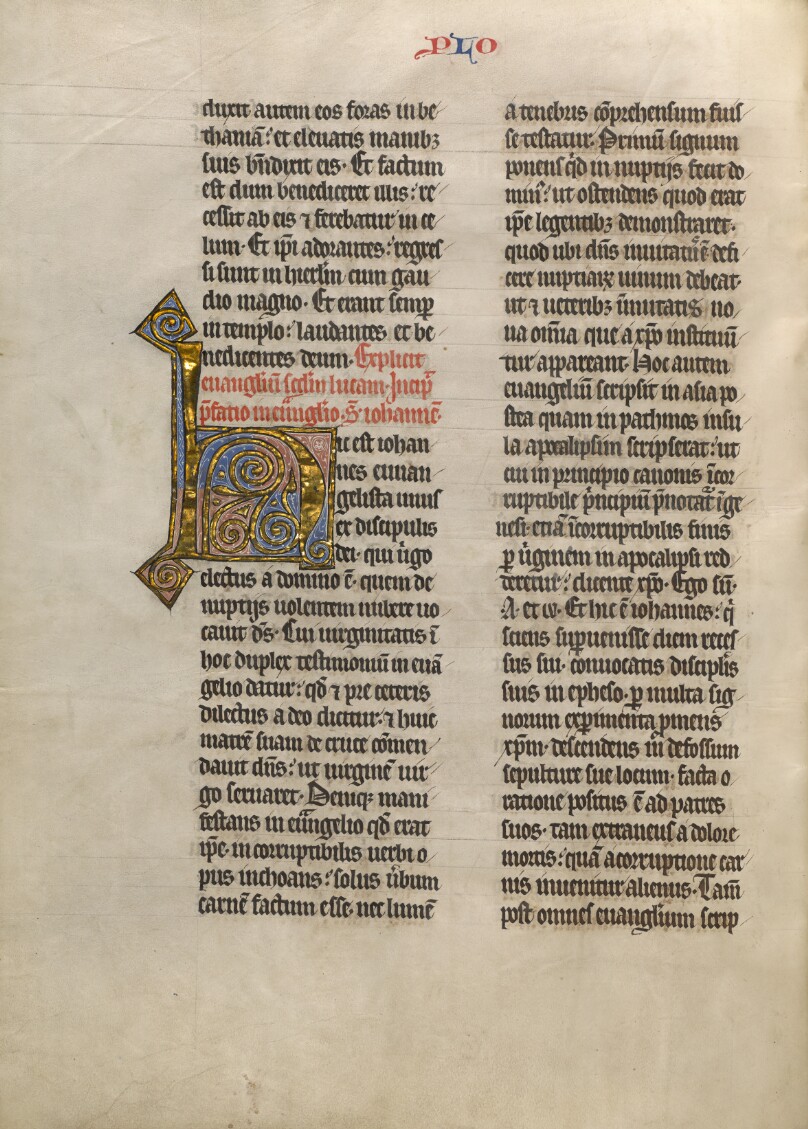 PLO
duxit autem eos foras in be
thaniā: et eleuatis manibꝫ
suis bn̄dixit eis. Et factum
est dum benediceret illis: re
cessit ab eis ⁊ ferebatur in ce
lum. Et ip̄i adorantes: regres
si sunt in hierl̄m cum gau
dio magno. Et erant semꝑ
in templo: laudantes et be
nedicentes deum. Explicit
euangliū scd̄m lucam. Incip̄
p̄fatio in eūuglio. S. iohannē.
Hic est iohan
nes euuan
gelista unus
ex discipulis
dei. qui u̇go
electus a domino ē. quem de
nuptijs uolentem nubere uo
cauit d̄s. Cui uirginitatis ī
hoc duplex testimoniū in euā
gelio datur: qd̄ ⁊ pre ceteris
dilectus a deo dicitur. ⁊ huic
matrē suam de cruce cōmen
dauit dn̄s: ut uirginē uir
go seruaret. Deniqꝫ mani
festans in eūngelio qd̄ erat
ip̄e. incorruptibilis uerbi o
pus inchoans: solus u̇bum
carnē factum esse. nec lumē
a tenebris cōprehensum fuis
se testatur. Primū signum
ponens qd̄ in nuptijs fecit do
minꝰ: ut ostendens quod erat
ip̄e legentibꝫ demonstraret.
quod ubi dn̄s inuitatur ē defi
cere nuptiaꝝ uinum debeat.
ut ⁊ ueteribꝫ īmutatis no
ua om̄ia que a xp̄o instituū
tur appareant. Hoc autem
euangeliū scripsit in asia po
stea quam in pathmos insu
la apocalipsim scripserat: ut
cui in principio canonis īcor
ruptibile p̄ncipiū p̄notat̄ ī ge
nesi. etiā īcorruptibilis finis
ꝑ u̇ginem in apocalipsi red
deretur: dicente xp̄o. Ego sū.
A. et ω. Et hic ē iohannes: q̇
sciens suꝑuenisse diem reces
sus sui. conuocatis discipl̄is
suis in epheso. ꝑ multa sig
norum exꝑimenta ꝓmens
xp̄m. descendens in defossum
sepulture sue locum. facta o
ratione positus ē ad patres
suos. tam extraneus a dolore
mortis: quā a corruptione car
nis inuenitur alienus. Tam̄
post omnes euanglium scrip